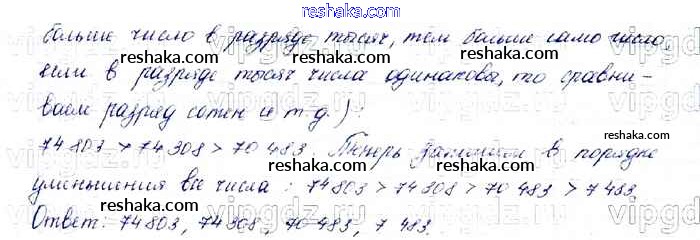 reshaka.com
больше число в разряде тысяч, тем больше само число,
если в разряде тысяч числа одинаковы, то сравни-
ваем разряд сотен и т.д.):
74 803 > 74 308 > 70 483. Теперь запишем в порядке
уменьшения все числа: 74 803 > 74 308 > 70 483 > 7 483.
Ответ: 74 803, 74 308, 70 483, 7 483.
reshaka.com
reshaka.com
reshaka.com
reshaka.com
reshaka.com
reshaka.com
reshaka.com
reshaka.com